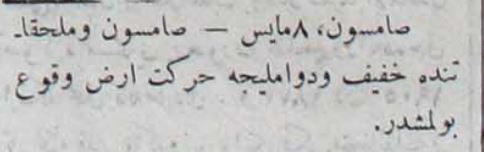 صامسون، ٨مايس — صامسون وملحقا-
تنده خفيف ودوامليجه حركت ارض وقوع
بولمشدر.